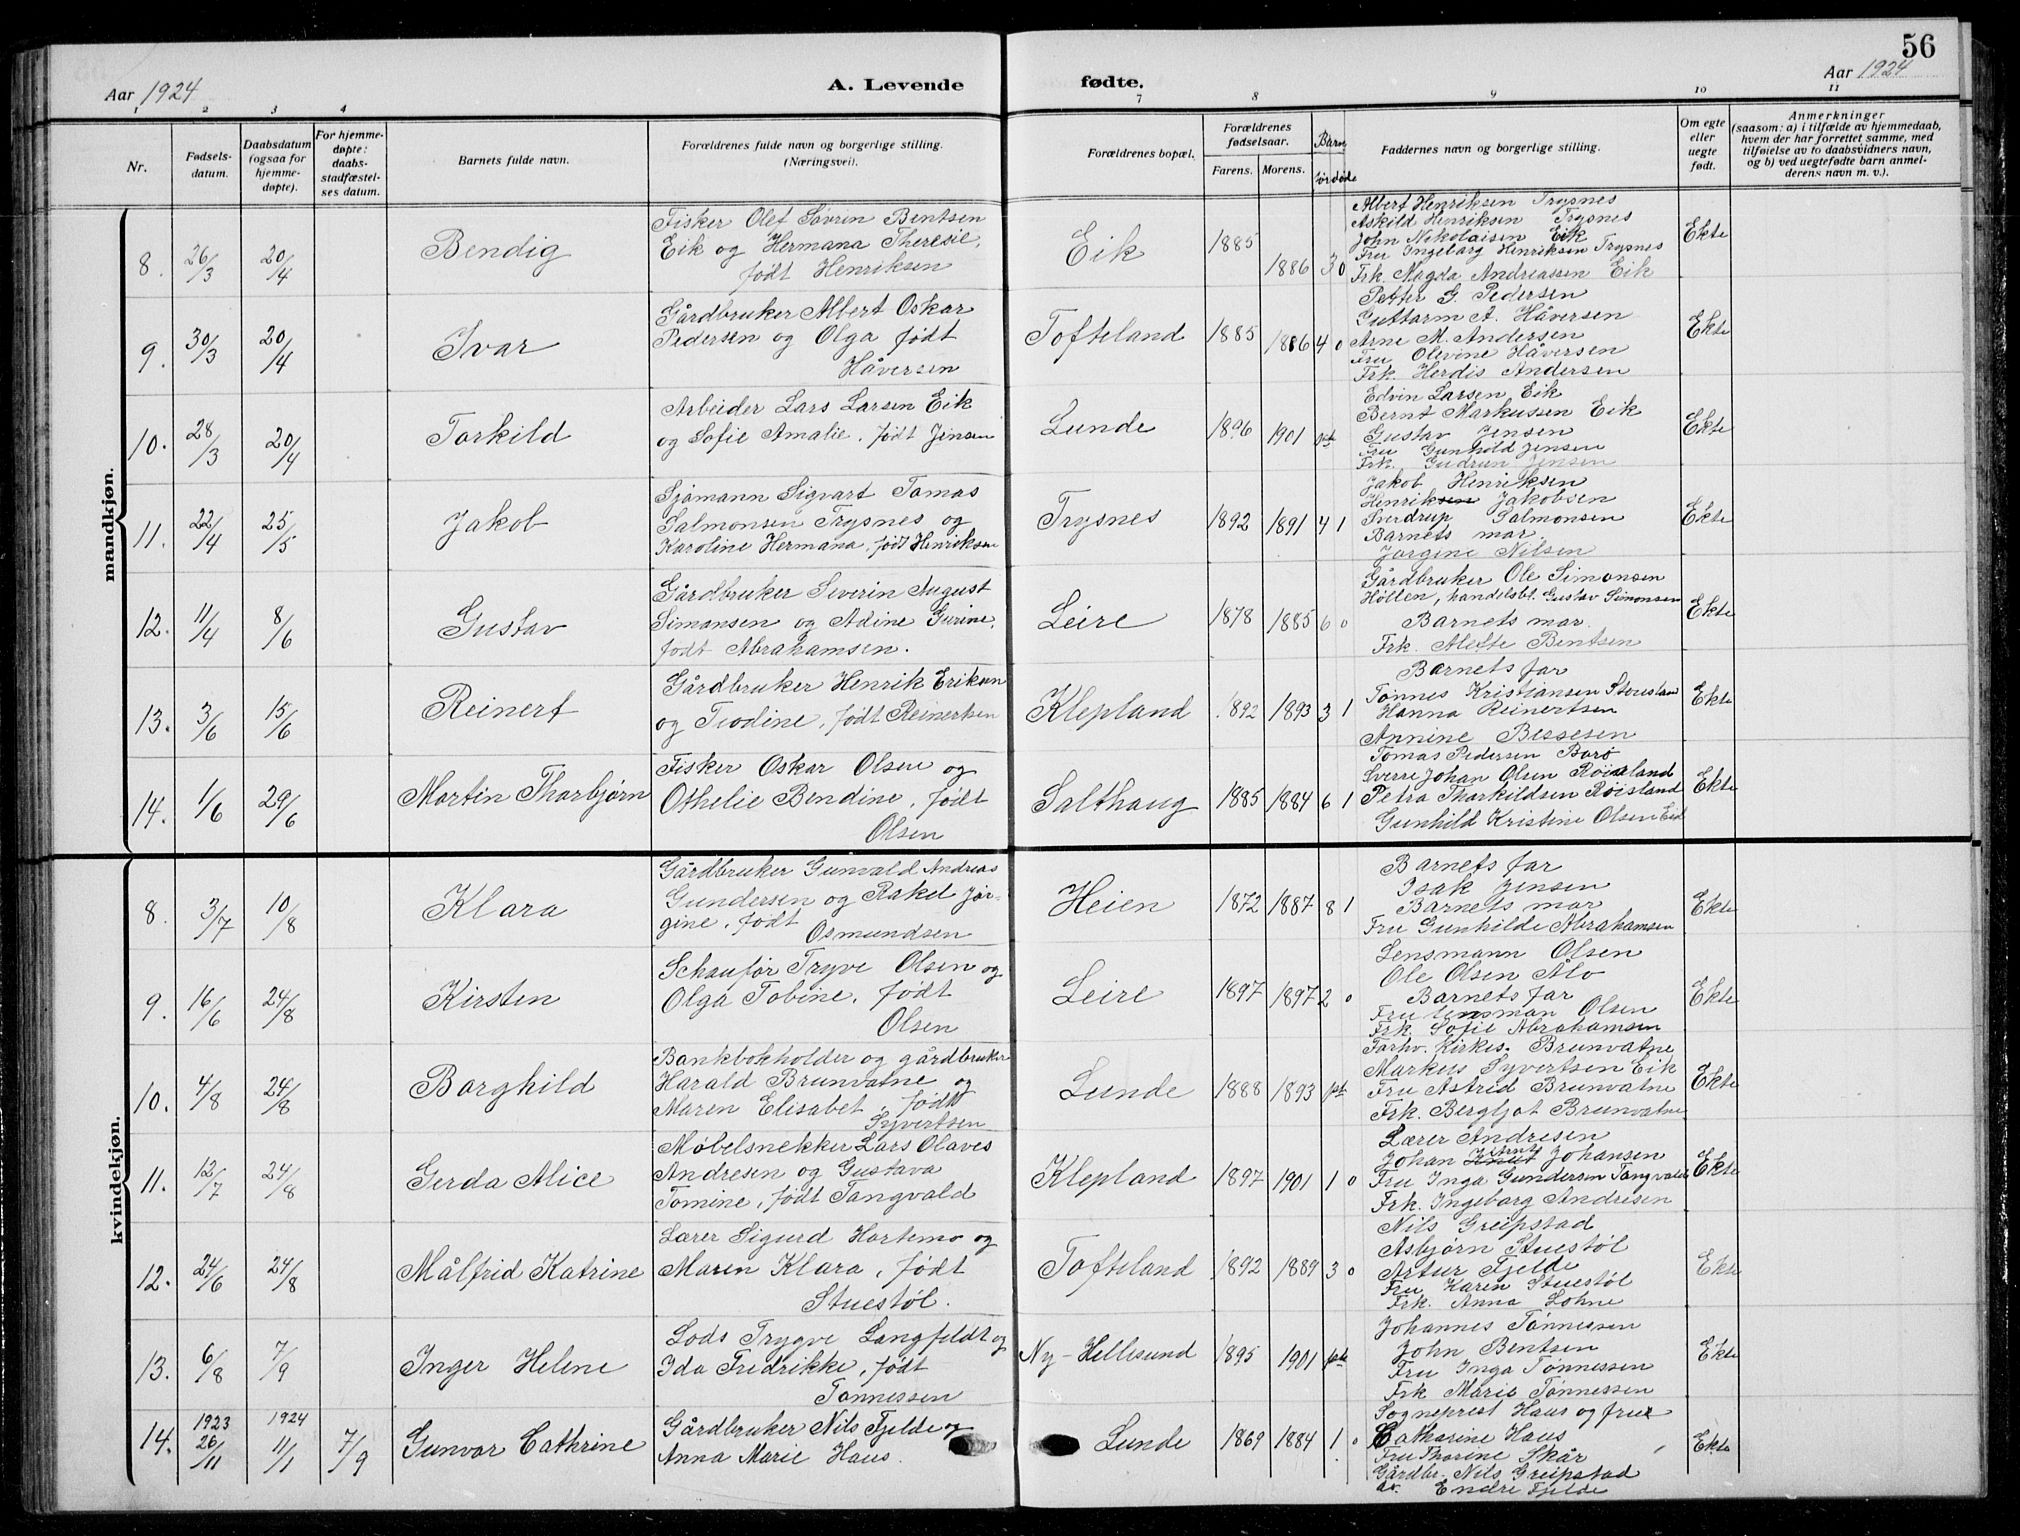 56
Aar 1924
A. Levende
fødte.
Aar 1924
1 2 3 4 7 8 9 10 11
Nr.
Fødsels-
datum.
Daabsdatum
(ogsaa for
hjemme-
døpte).
For hjemme-
døpte:
daabs-
stadfæstel-
ses datum.
Barnets fulde navn.
Forældrenes fulde navn og borgerlige stilling.
(Næringsvei).
Forældrenes bopæl.
Forældrenes
fødselsaar.
Farens. Morens.
Barn
før døde
Faddernes navn og borgerlige stilling.
Om egte
eller
uegte
født.
Anmerkninger
(saasom: a) i tilfælde av hjemmedaab,
hvem der har forrettet samme, med
tilføielse av to daabsvidners navn,
og b) ved uegtefødte barn anmel-
derens navn m. v.).
mandkjøn.
8. 26/3 20/4 Bendig
Fisker Olet Søvrin Bentsen
Eik og Hermana Theresie,
født Henriksen
Eik 1885 1886 3 0
Albert Henriksen Trysnes
Askild Henriksen Trysnes
John Nikolaisen Eik
Fru Ingebarg Henriksen Trysnes
Frk. Magda Andreassen Eik
Ekte
9. 30/3 20/4 Ivar
Gårdbruker Albert Oskar
Pedersen og Olga født
Håversen
Tofteland 1885 1886 4 0
Petter G. Pedersen
Guttorm A. Håversen
Arne M. Andersen
Fru Olevine Håversen
Frk. Herdis Andersen
Ekte
10. 28/3 20/4 Torkild
Arbeider Lars Larsen Eik
og Sofie Amalie, født Jensen
Lunde 1896 1901
Edvin Larsen Eik
Bernt Markussen Eik
Gustav Jensen
Fru Gunhild Jensen
Frk. Gudrun Jensen
Ekte
11. 22/4 25/5 Jakob
Sjømann Sigvart Tomas
Salmonsen Trysnes og
Karoline Hermana, født Henriksen
Trysnes 1892 1891 4 1
Jakob Henriksen
Henriksen Jakobsen
Sverdrup Salmonsen
Barnets mor
Jørgine Nilsen
Ekte
12. 11/4 8/6 Gustav
Gårdbruker Severin August
Simonsen og Adine Gurine,
født Abrahamsen.
Leire 1878 1885 6 0
Gårdbruker Ole Simonsen
Høllen, handelsbt. Gustav Simonsen
Barnets mor.
Frk. Mette Bentsen
Ekte
13. 3/6 15/6 Reinert
Gårdbruker Henrik Eriksen
og Teodine, født Reinertsen
Klepland 1892 1893 3 1
Barnets far
Tønnes Kristiansen Stoustøl
Hanna Reinertsen
Annine Bessesen
Ekte
14. 1/6 29/6 Martin Thorbjørn
Fisker Oskar Olsen og
Othelie Bendine, født
Olsen
Salthaug 1885 1884 6 1
Tomas Pedersen Borø
Sverre Johan Olsen Røisland
Petra Thorkildsen Røisland
Gunhild Kristine Olsen Eid
Ekte
kvindekjøn.
8. 3/7 10/8 Klara
Gårdbruker Gunvald Andreas
Gundersen og Rakel Jør-
gine, født
Osmundsen
Heien 1872 1887 8 1
Barnets far
Isak Jensen
Barnets mor
Fru Gunhilde Abrahamsen
Ekte
9. 16/6 24/8 Kirsten
Schauför Tryve Olsen og
Olga Tobine, født
Olsen
Leire 1897 1897 2 0
Lensmann Olsen
Ole Olsen Alo
Barnets far
Fru lensman Olsen
Frk. Sofie Abrahamsen
Ekte
10. 4/8 24/8 Borghild
Bankbokholder og gårdbruker
Harald Brunvatne og
Maren Elisabet, født
Syvertsen
Lunde 1888 1893
Forhv. Kirkes. Brunvatne
Markus Syvertsen Eik
Fru Astrid Brunvatne
Frk. Bergljot Brunvatne
Ekte
11. 12/7 24/8 Gerda Alice
Møbelsnekker Lars Olaves
Andresen og Gustava
Tomine, født Tangvald
Klepland 1897 1901 1 0
Lærer Andresen
Johan Knut Johansen
Fru Inga Gundersen Tangvald
Frk. Ingeborg Andresen
Ekte
12. 24/6 24/8 Målfrid Katrine
Lærer Sigurd Hortemo og
Maren Klara, født
Stuestøl.
Tofteland 1892 1889 3 0
Nils Greipstad
Asbjørn Stuestøl
Artur Fjelde
Fru Karen Stuestøl
Frk. Anna Lohne
Ekte
13. 6/8 7/9 Inger Helene
Lods Trygve Langfeldt og
Ida Fredrikke, født
Tønnessen
Ny-Hellesund 1895 1901
Johannes Tønnessen
John Bentsen
Fru Inga Tønnessen
Frk Marie Tønnessen
Ekte
14. 1923 26/11 1924 11/1 7/9 Gunvor Cathrine
Gårdbruker Nils Fjelde og
Anna Marie Haus.
Lunde 1869 1884 1 0
Sogneprest Haus og frue
Catharine Haus
Fru Thorine Skår
Gårdbr. Nils Greipstad
do. Endre Fjelde
Ekte